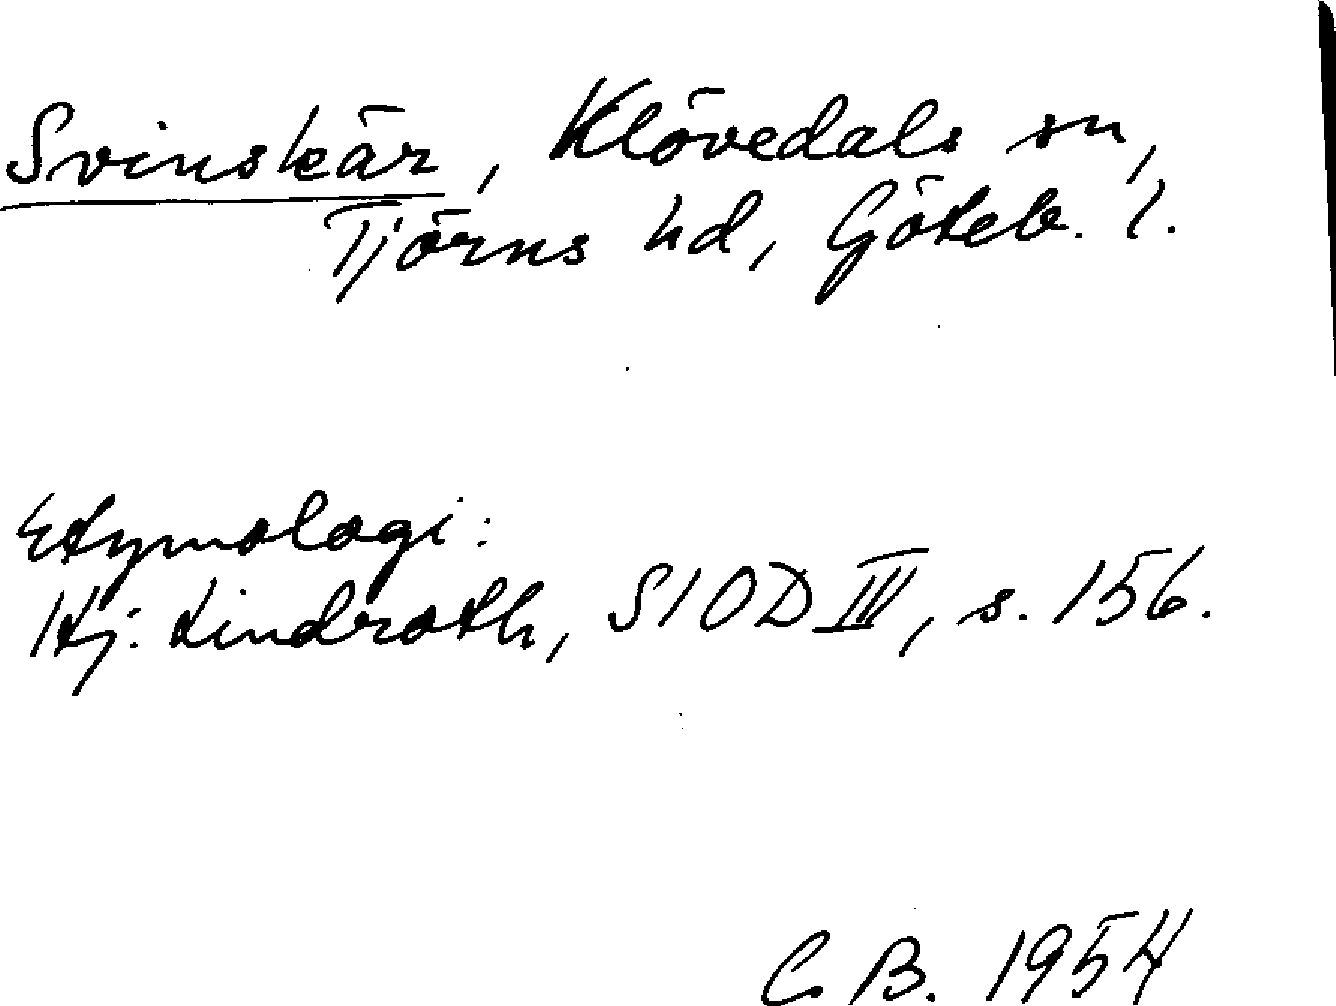 Svinskär, Klövedals sn,
Tjörns hd, Göteb. l.
Etymologi:
Hj. Lindroth, SIOD III, s. 156.
C. B. 1954